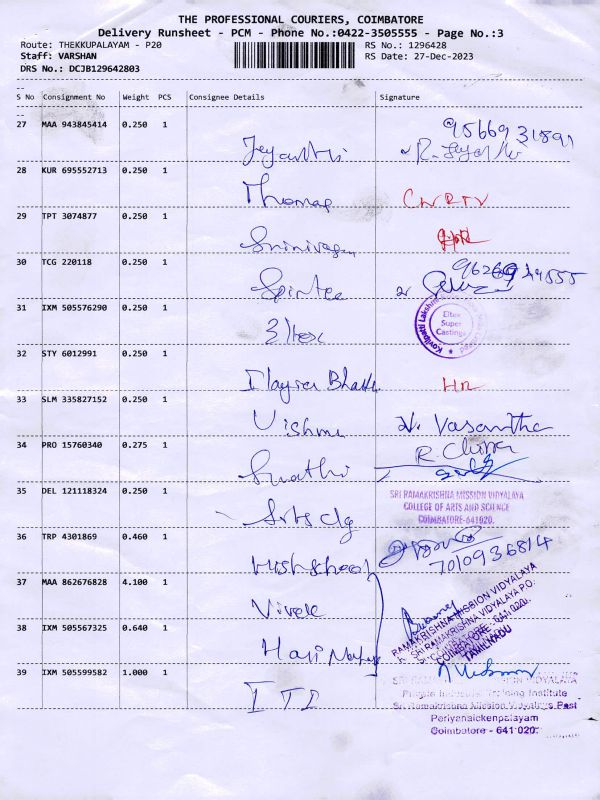 THE PROFESSIONAL COURIERS, COIMBATORE
Delivery Runsheet - PCM - Phone No.:0422-3505555 - Page No.:3
Route: THEKKUPALAYAM - P20 RS No.: 1296428
Staff: VARSHAN RS Date: 27-Dec-2023
DRS No.: DCJB129642803
S No Consignment No Weight PCS Consignee Details Signature
27 MAA 943845414 0.250 1
Jeyanthi R. Jeyanthi
28 KUR 695552713 0.250 1
Thomas
29 TPT 3074877 0.250 1
Srinivasan
30 TCG 220118 0.250 1
31 IXM 505576290 0.250 1
Eltex
Super
Castings
32 STY 6012991 0.250 1
HR
33 SLM 335827152 0.250 1
V. Vasantha
34 PRO 15760340 0.275 1
R. Chitra
Swathi
35 DEL 121118324 0.250 1
SRI RAMAKRISHNA MISSION VIDYALAYA
COLLEGE OF ARTS AND SCIENCE
COIMBATORE-641020.
Arts clg
36 TRP 4301869 0.460 1
7010936814
37 MAA 862676828 4.100 1
Vivek
RAMAKRISHNA MISSION VIDYALAYA
SRI RAMAKRISHNA VIDYALAYA P.O.
COIMBATORE - 641 020.
TAMILNADU
38 IXM 505567325 0.640 1
Hari
39 IXM 505599582 1.000 1
ITI
Private Industrial Training Institute
Sri Ramakrishna Mission Vidyalaya Post
Periyanaickenpalayam
Coimbatore - 641 020.